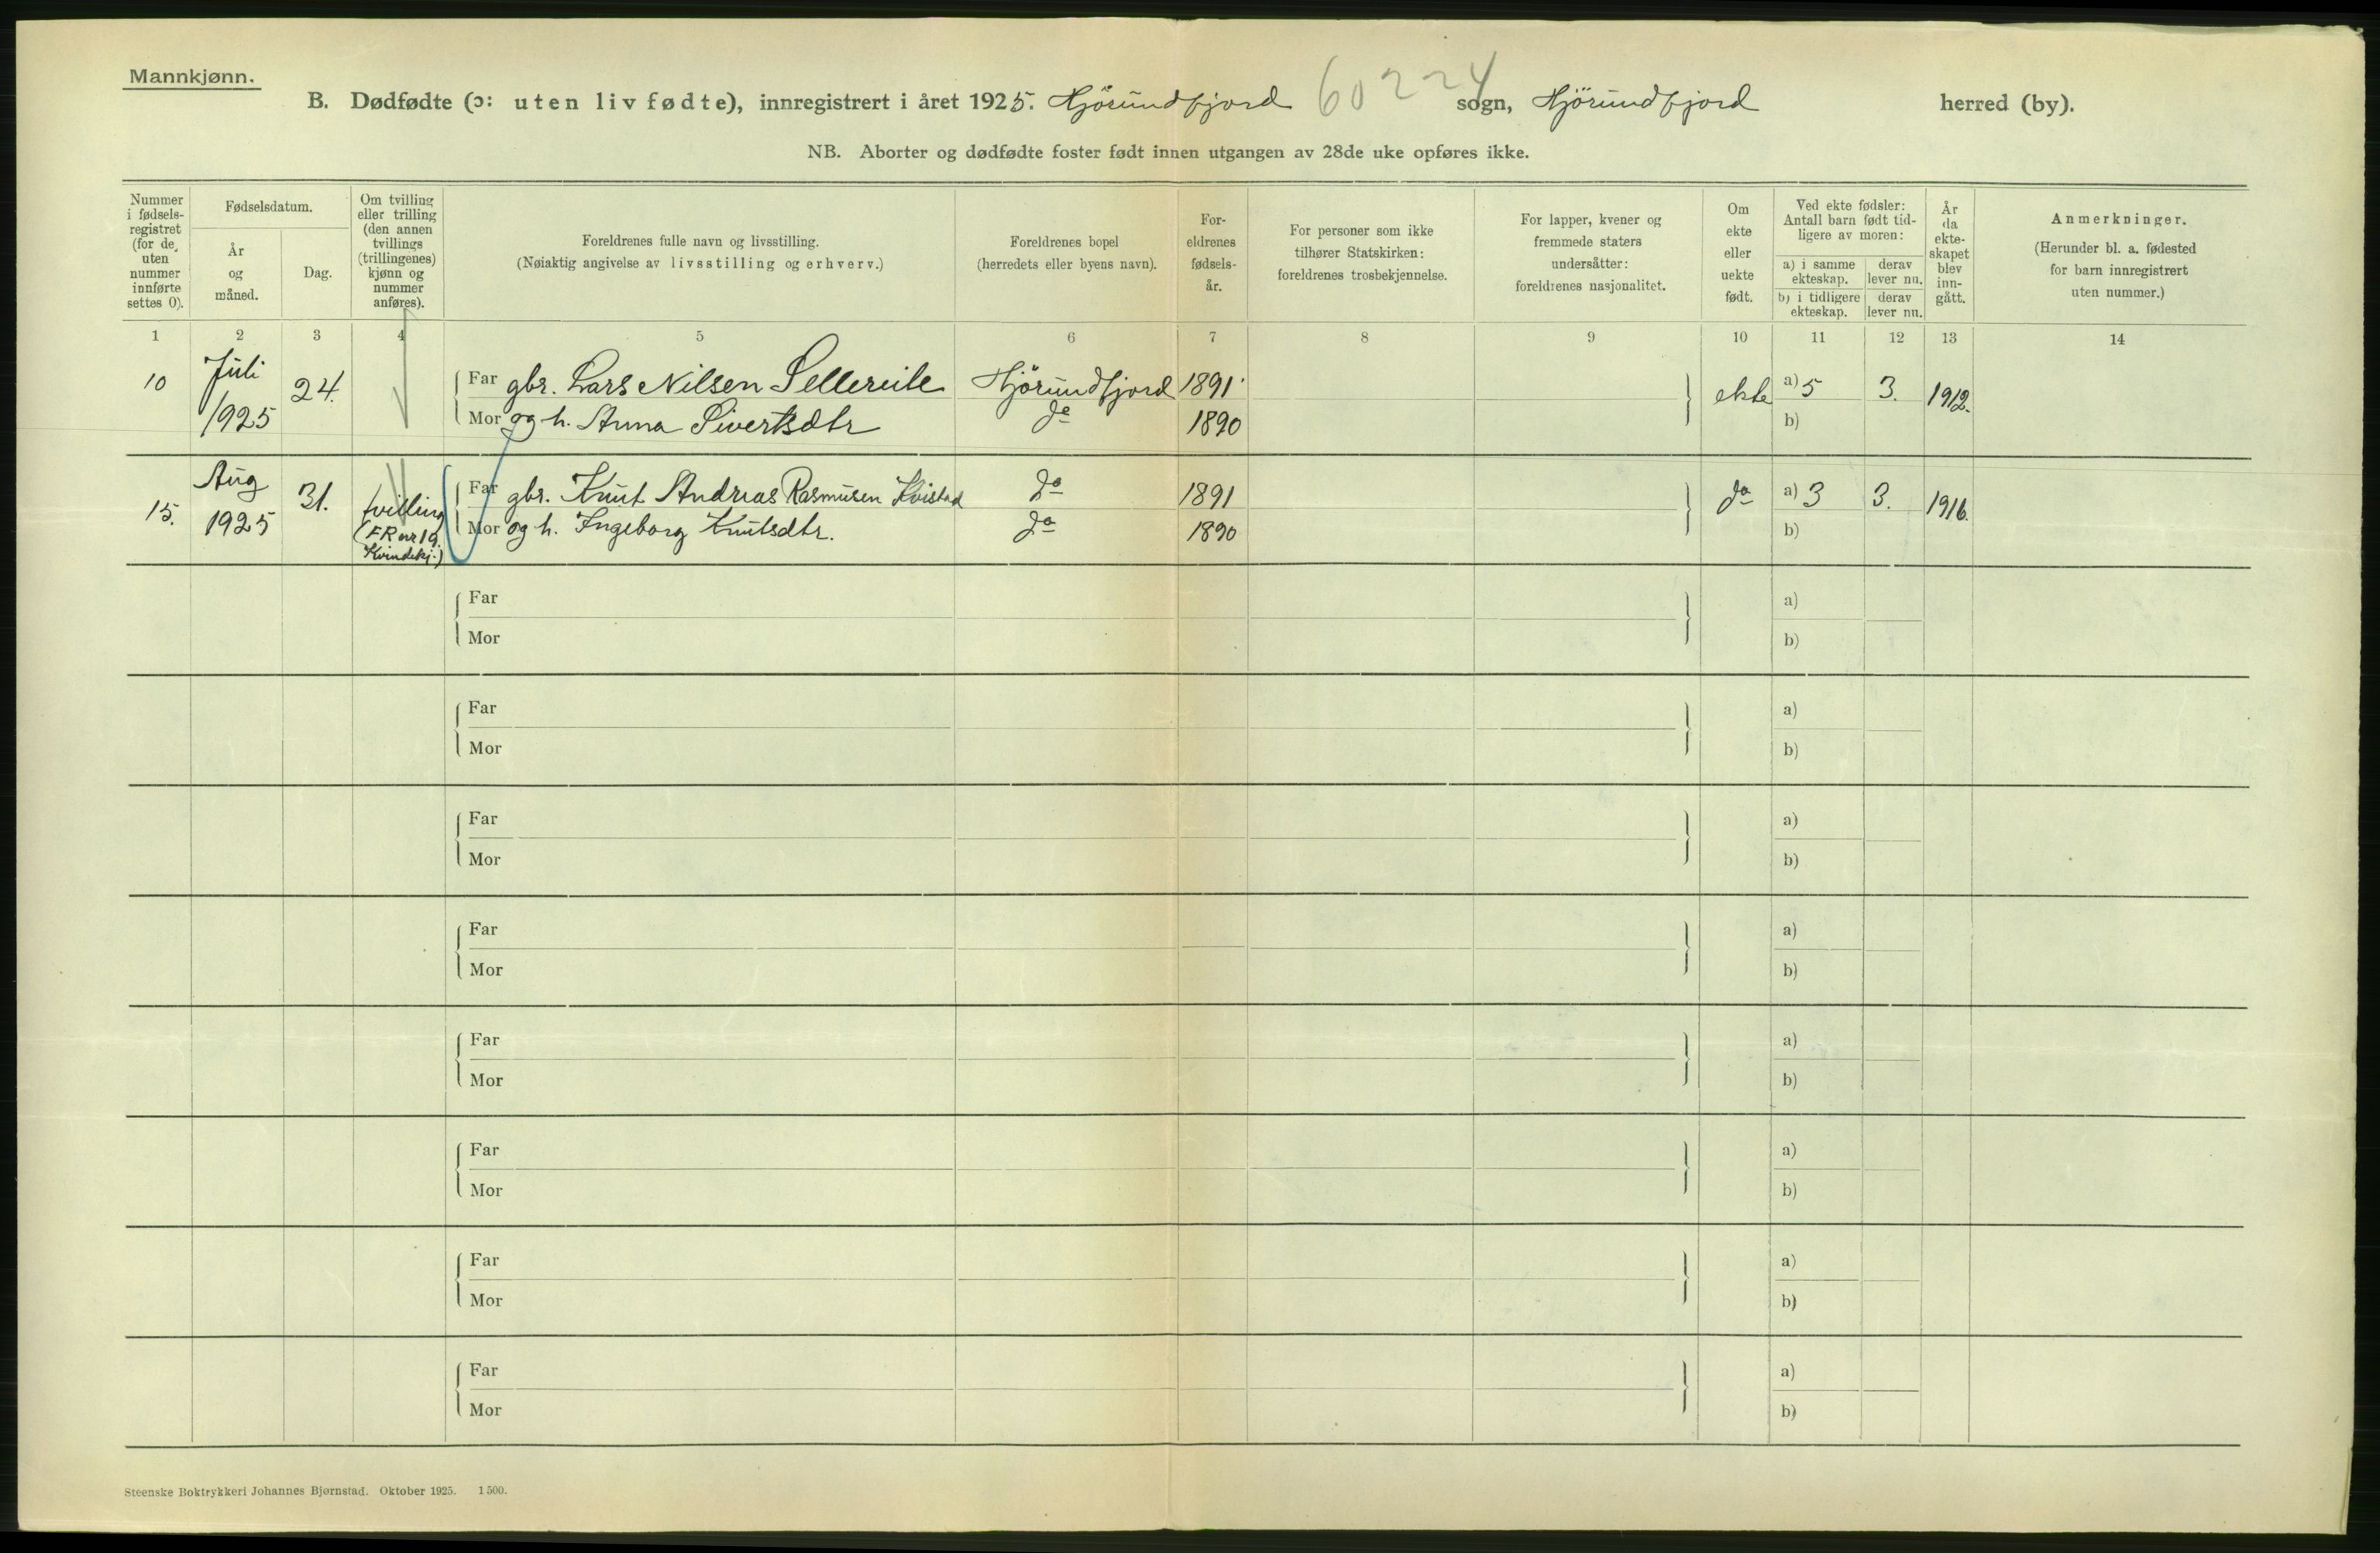 Mannkjønn.
60224
B. Dødfødte (ɔ: uten liv fødte), innregistrert i året 1925. Hjörundfjord sogn, Hjörundfjord herred (by).
NB. Aborter og dødfødte foster født innen utgangen av 28de uke opføres ikke.
Nummer i fødsels-registret (for de uten nummer innførte settes 0).
Fødselsdatum.
År og måned.
Dag.
Om tvilling eller trilling (den annen tvillings (trillingenes) kjønn og nummer anføres).
Foreldrenes fulle navn og livsstilling.
(Nøiaktig angivelse av livsstilling og erhverv.)
Foreldrenes bopel
(herredets eller byens navn).
For-eldrenes fødsels-år.
For personer som ikke tilhører Statskirken: foreldrenes trosbekjennelse.
For lapper, kvener og fremmede staters undersåtter: foreldrenes nasjonalitet.
Om ekte eller uekte født.
Ved ekte fødsler: Antall barn født tid-ligere av moren:
a) i samme ekteskap. derav lever nu.
b) i tidligere ekteskap. derav lever nu.
År da ekte-skapet blev inn-gått.
Anmerkninger.
(Herunder bl. a. fødested for barn innregistrert uten nummer.)
1 2 3 4 5 6 7 8 9 10 11 12 13 14
10 Juli 1925 24.
Far gbr. Lars Nilsen Sellereite Hjörundfjord 1891 ekte a) 5 3. 1912.
Mor og h. Anna Sivertsdtr do 1890 b)
15. Aug 1925 31. tvilling (FR nr 19. Kvindekj.)
Far gbr. Knut Andreas Rasmusen Kvistad do 1891 do a) 3 3. 1916.
Mor og h. Ingeborg Knutsdtr. do 1890 b)
Far a)
Mor b)
Far a)
Mor b)
Far a)
Mor b)
Far a)
Mor b)
Far a)
Mor b)
Far a)
Mor b)
Far a)
Mor b)
Far a)
Mor b)
Steenske Boktrykkeri Johannes Bjørnstad. Oktober 1925. 1500.